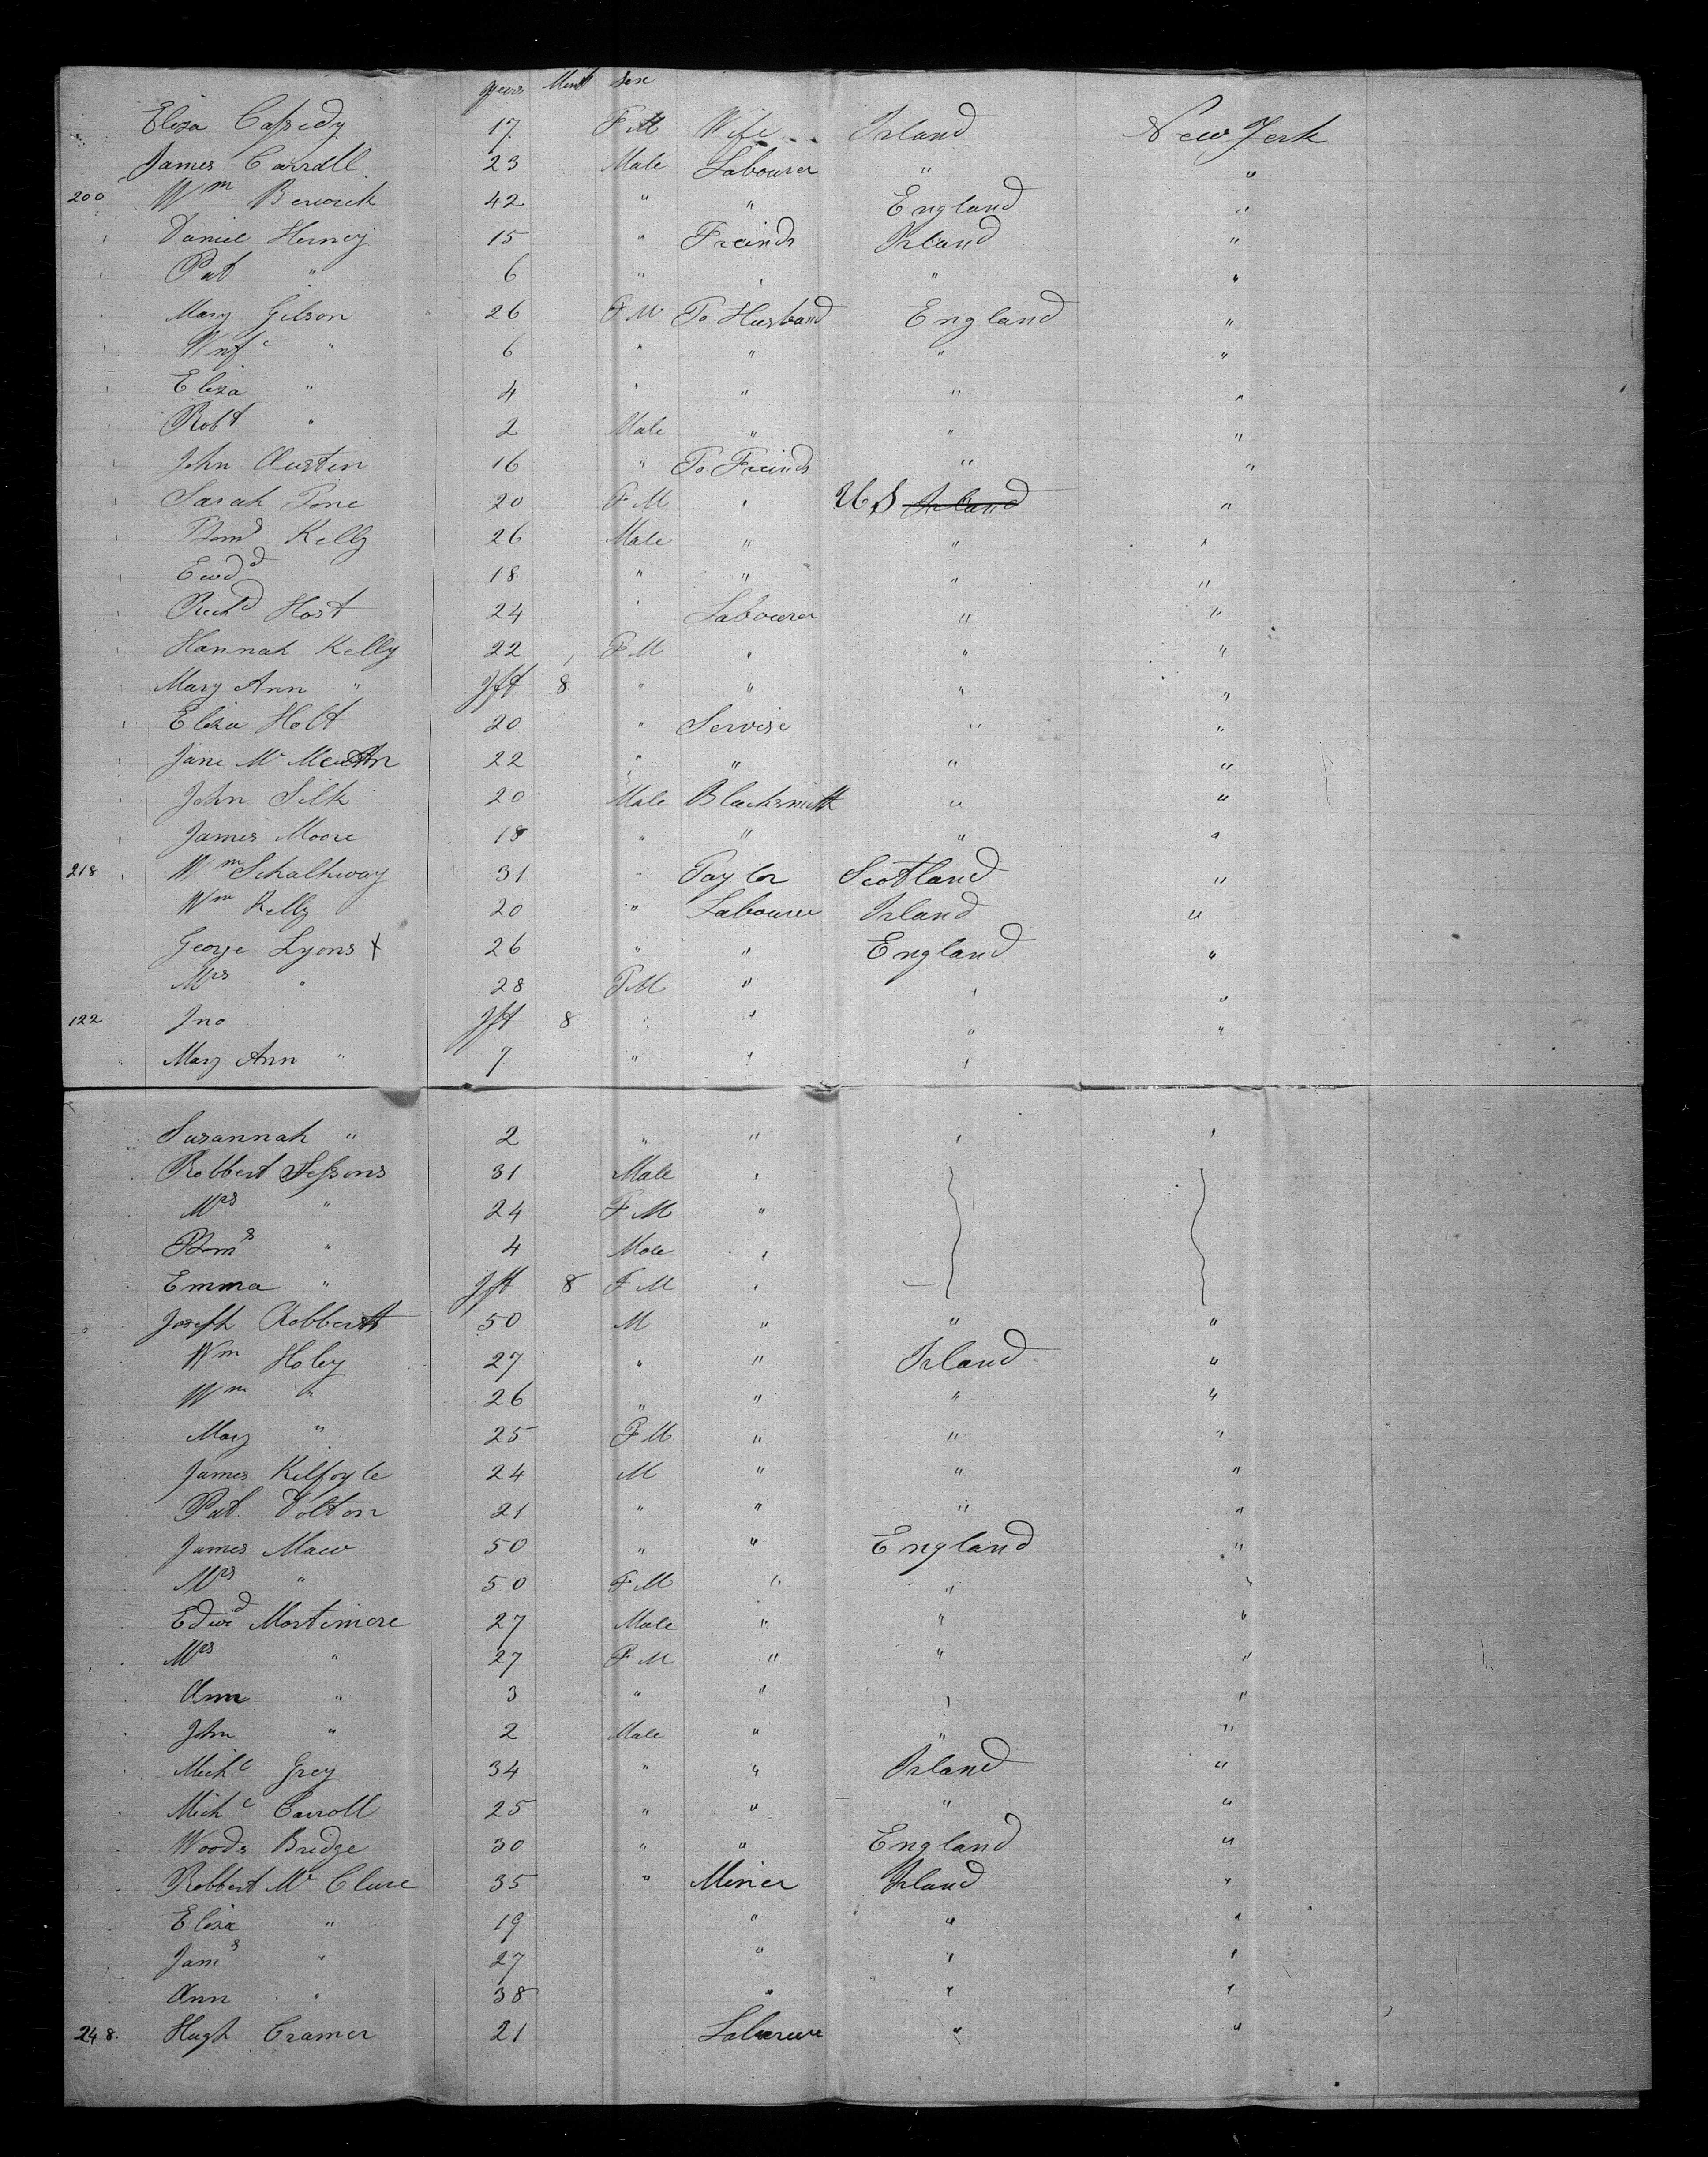 years Mont sex
Eliza Cassedy 17 F M Wife Irland New York
James Carroll 23 Male Labourer " "
200 Wm Berwick 42 " " England "
Daniel Herney 15 " Freinds Irland "
Pat " 6 " " " "
Mary Gibson 26 F M To Husband England "
Wnfc " 6 " " " "
Eliza " 4 " " " "
Robt " 2 Male " " "
John Austin 16 " To Freinds " "
Sarah Tone 20 F M " U S Irland "
Kelly 26 Male " " "
Ewdd 18 " " " "
Richd Host 24 " Labourer " "
Hannah Kelly 22 F M " " "
Mary Ann " Ift 8 " " " "
Eliza Holt 20 " Servise " "
Jane Mc 22 " " " "
John Silk 20 Male Blacksmith " "
James Moore 18 " " " "
218 Wm Schalhway 31 " Taylor Scotland "
Wm Kelly 20 " Labourer Irland "
George Lyons X 26 " " England "
Mrs " 28 F M " " "
122 Jno Ift 8 " " " "
" Mary Ann " 7 " " " "
Susannah " 2 " " " "
Robbert Sessons 31 Male "
Mrs " 24 F M "
Thoms " 4 Male "
Emma " Ift 8 F M "
Joseph Robberts 50 M " " "
Wm Holey 27 " " Irland "
Wm " 26 " " " "
Mary " 25 F M " " "
James Kilfoyle 24 M " " "
Pat Dolton 21 " " " "
James Maw 50 " " England "
Mrs " 50 F M " " "
Edwd Mortimore 27 Male " " "
Mrs " 27 F M " " "
Ann " 3 " " " "
John " 2 Male " " "
Michl Grey 34 " " Irland "
Michl Carroll 25 " " " "
Woods Bridge 30 " " England "
Robbert Mc Clure 35 " Miner Irland "
Eliza " 19 " " "
Jams " 27 " " "
Ann " 38 " " "
248. Hugh Cramer 21 Labourer " "